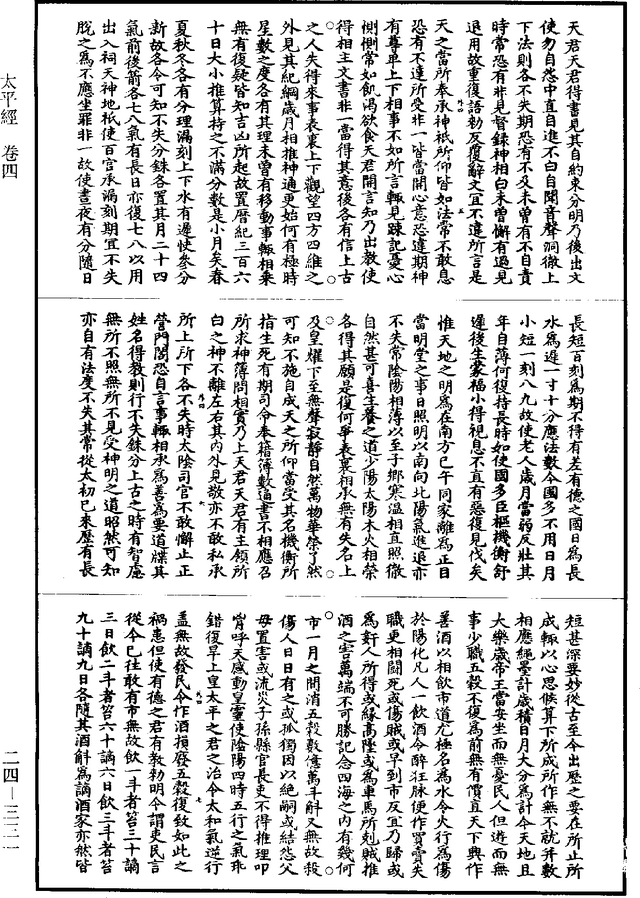 天君天君得書見其自約束分明乃後出文
使勿自怨中直自進不白自聞音聲洞徹上
下法則各不失期恐有不及未曾有不自責
時常恐有非見督錄神相白未曾懈有過見
退用故重復語勅反覆辭文宜不違所言是
天之當所奉承神祇所仰皆如法常不敢息
恐有不達所受非一皆當開心意恐違期神
有尊卑上下相事不如所言輒見疎記憂心
惻惻常如飢渴欲食天君聞言知乃出教使
得相主文書非一當得其意後各有信上古
之人失得來事表裏上下觀望四方四維之
外見其紀綱歲月相推神通更始何有極時
星數之度各有其理未曾有移動事輒相乘
無有復疑皆知吉凶所起故置曆紀三百六
十日大小推算持之不滿分數是小月矣春
夏秋冬各有分理漏刻上下水有遲快參分
新故各令可知不失分銖各置其月二十四
氣前後箭各七八氣有長日亦復七八以用
出入祠天神地祇使百官承漏刻期宜不失
脫之為不應坐罪非一故使晝夜有分隨日
長短百刻為期不得有差有德之國日為長
水為遲一寸十分應法數今國多不用日月
小短一刻八九故使老人歲月當弱反壯其
年自薄何復持長時如使國多臣樞機衡舒
遲後生蒙福小得視息不直有惡復見伐矣
惟天地之明為在南方巳午同家離為正目
當明堂之事日照明以南向北陽氣進退亦
不失常陰陽相薄以至子鄉寒溫相直照徹
自然甚可喜生養之道少陽太陽木火相榮
各得其願是復何爭表裏相承無有失名上
及皇燿下至無聲寂靜自然萬物華榮了然
可知不施自成天之所仰當受其名機衡所
指生死有期司命奉籍簿數通書不相應召
所求神簿問相實乃上天君天君有主領所
白之神不離左右其內外見敬亦不敢私承
所上所下各不失時太陰司官不敢懈止正
營門閤恐自言事輒相承為善為要道牒其
姓名得教則行不失銖分上古之時有智慮
無所不照無所不見受神明之道昭然可知
亦自有法度不失其常從太初已來歷有長
短甚深要妙從古至今出歷之要在所止所
成輒以心思候算下所成所作無不就并數
相應繩墨計歲積日月大分為計今天地且
大樂歲帝王當安坐而無憂民人但遊而無
事少職五穀不復為前無有價直天下興作
善酒以相飲市道尤極名為水令火行為傷
於陽化凡人一飲酒令醉狂脉便作買賣失
職更相鬭死或傷賊或早到市反宜乃歸或
為奸人所得或緣高墜或為車馬所剋賊推
酒之害萬端不可勝記念四海之內有幾何
市一月之間消五穀數億萬斗斛又無故殺
傷人日日有之或孤獨因以絕嗣或結怨父
母置害或流災子孫縣官長吏不得推理叩
胷呼天感動皇靈使陰陽四時五行之氣乖
錯復旱上皇太平之君之治令太和氣逆行
蓋無故發民令作酒損廢五穀復致如此之
禍患但使有德之君有教勅明令謂吏民言
從今已往敢有市無故飲一斗者笞三十謫
三日飲二斗者笞六十謫六日飲三斗者笞
九十謫九日各隨其酒斛為謫酒家亦然皆
太平經 卷四
二四—三二一